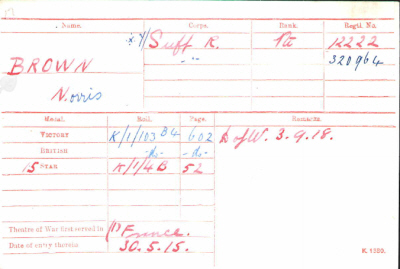 Name. Corps. Rank. Regtl. No.
BROWN x 4/Suff R. Pte 12222
" 320964
Norris
Medal. Roll. Page. Remarks.
Victory K/1/103 B4 602 D of W. 3.9.18.
British -do- -do-
15 Star K/1/4B 52
Theatre of War first served in (1) France.
Date of entry therein 30.5.15.
K. 1380.